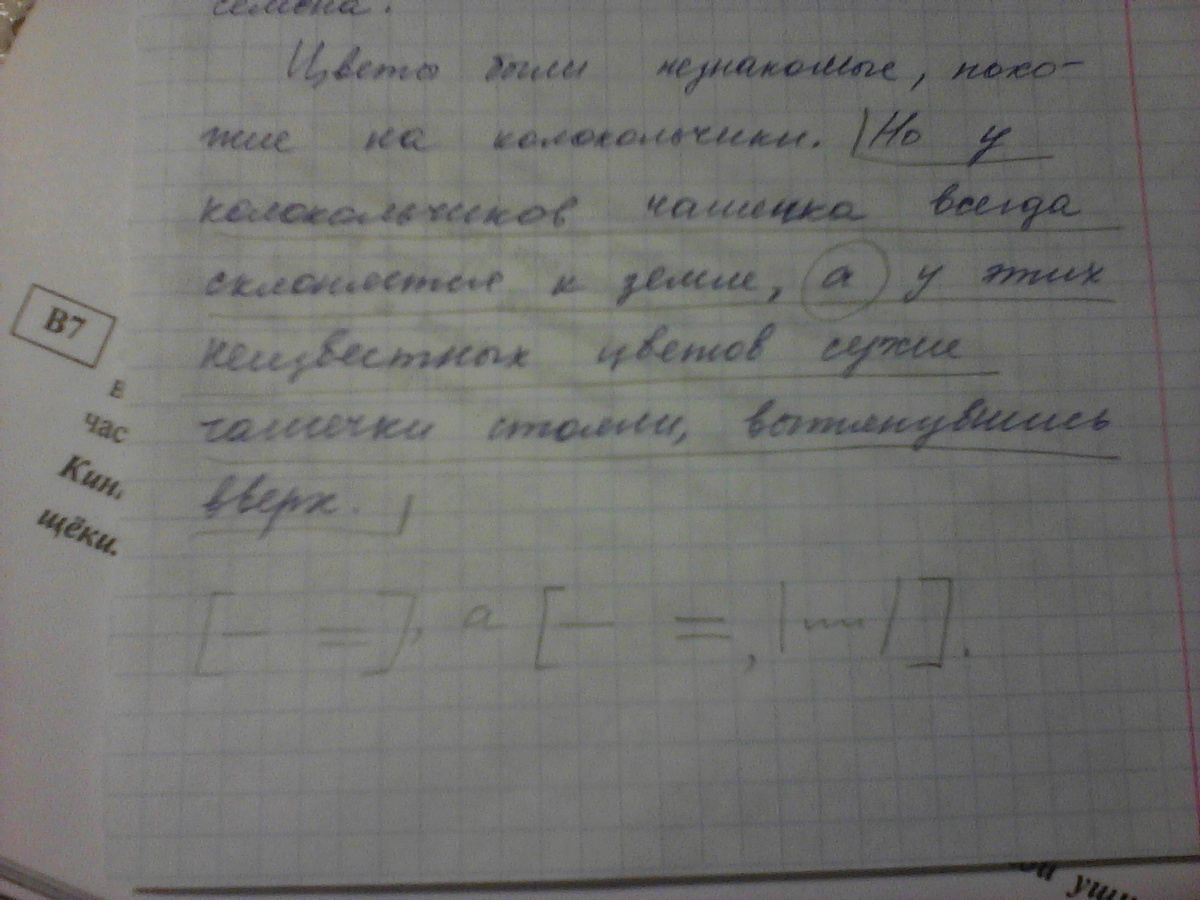 семена.
Цветы были незнакомые, похо-
жие на колокольчики. Но у
колокольчиков чашечка всегда
склоняется к земле, а у этих
неизвестных цветов сухие
чашечки стояли, вытянувшись
вверх.
[— =], а [— =, |—·—|].
В7
в
час
Кин
щёки.
ой уши